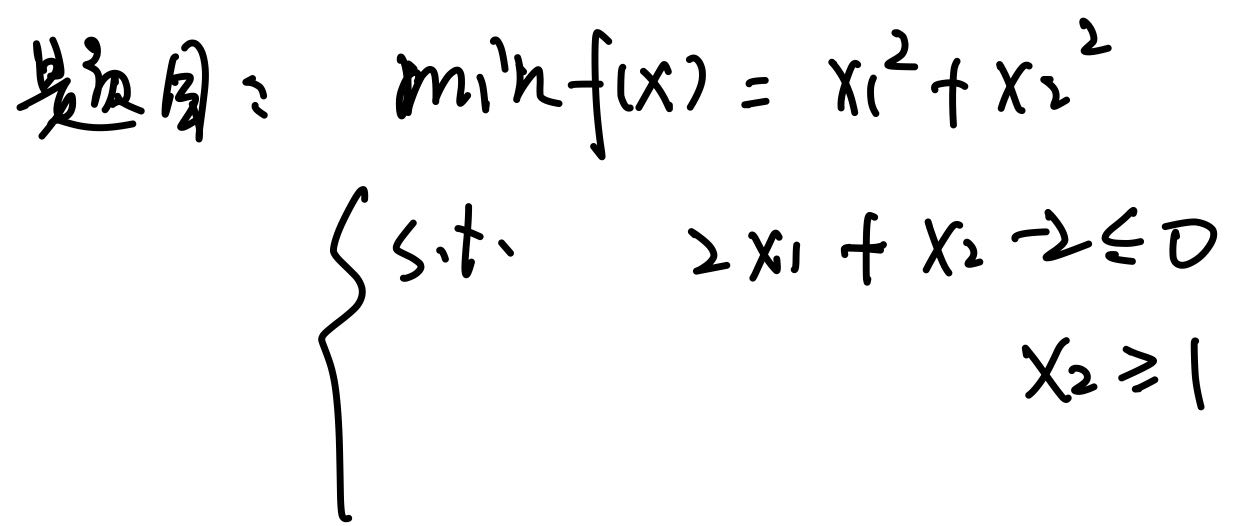 题目: min f(x) = x₁² + x₂²
s.t. 2x₁ + x₂ - 2 ≤ 0
x₂ ≥ 1